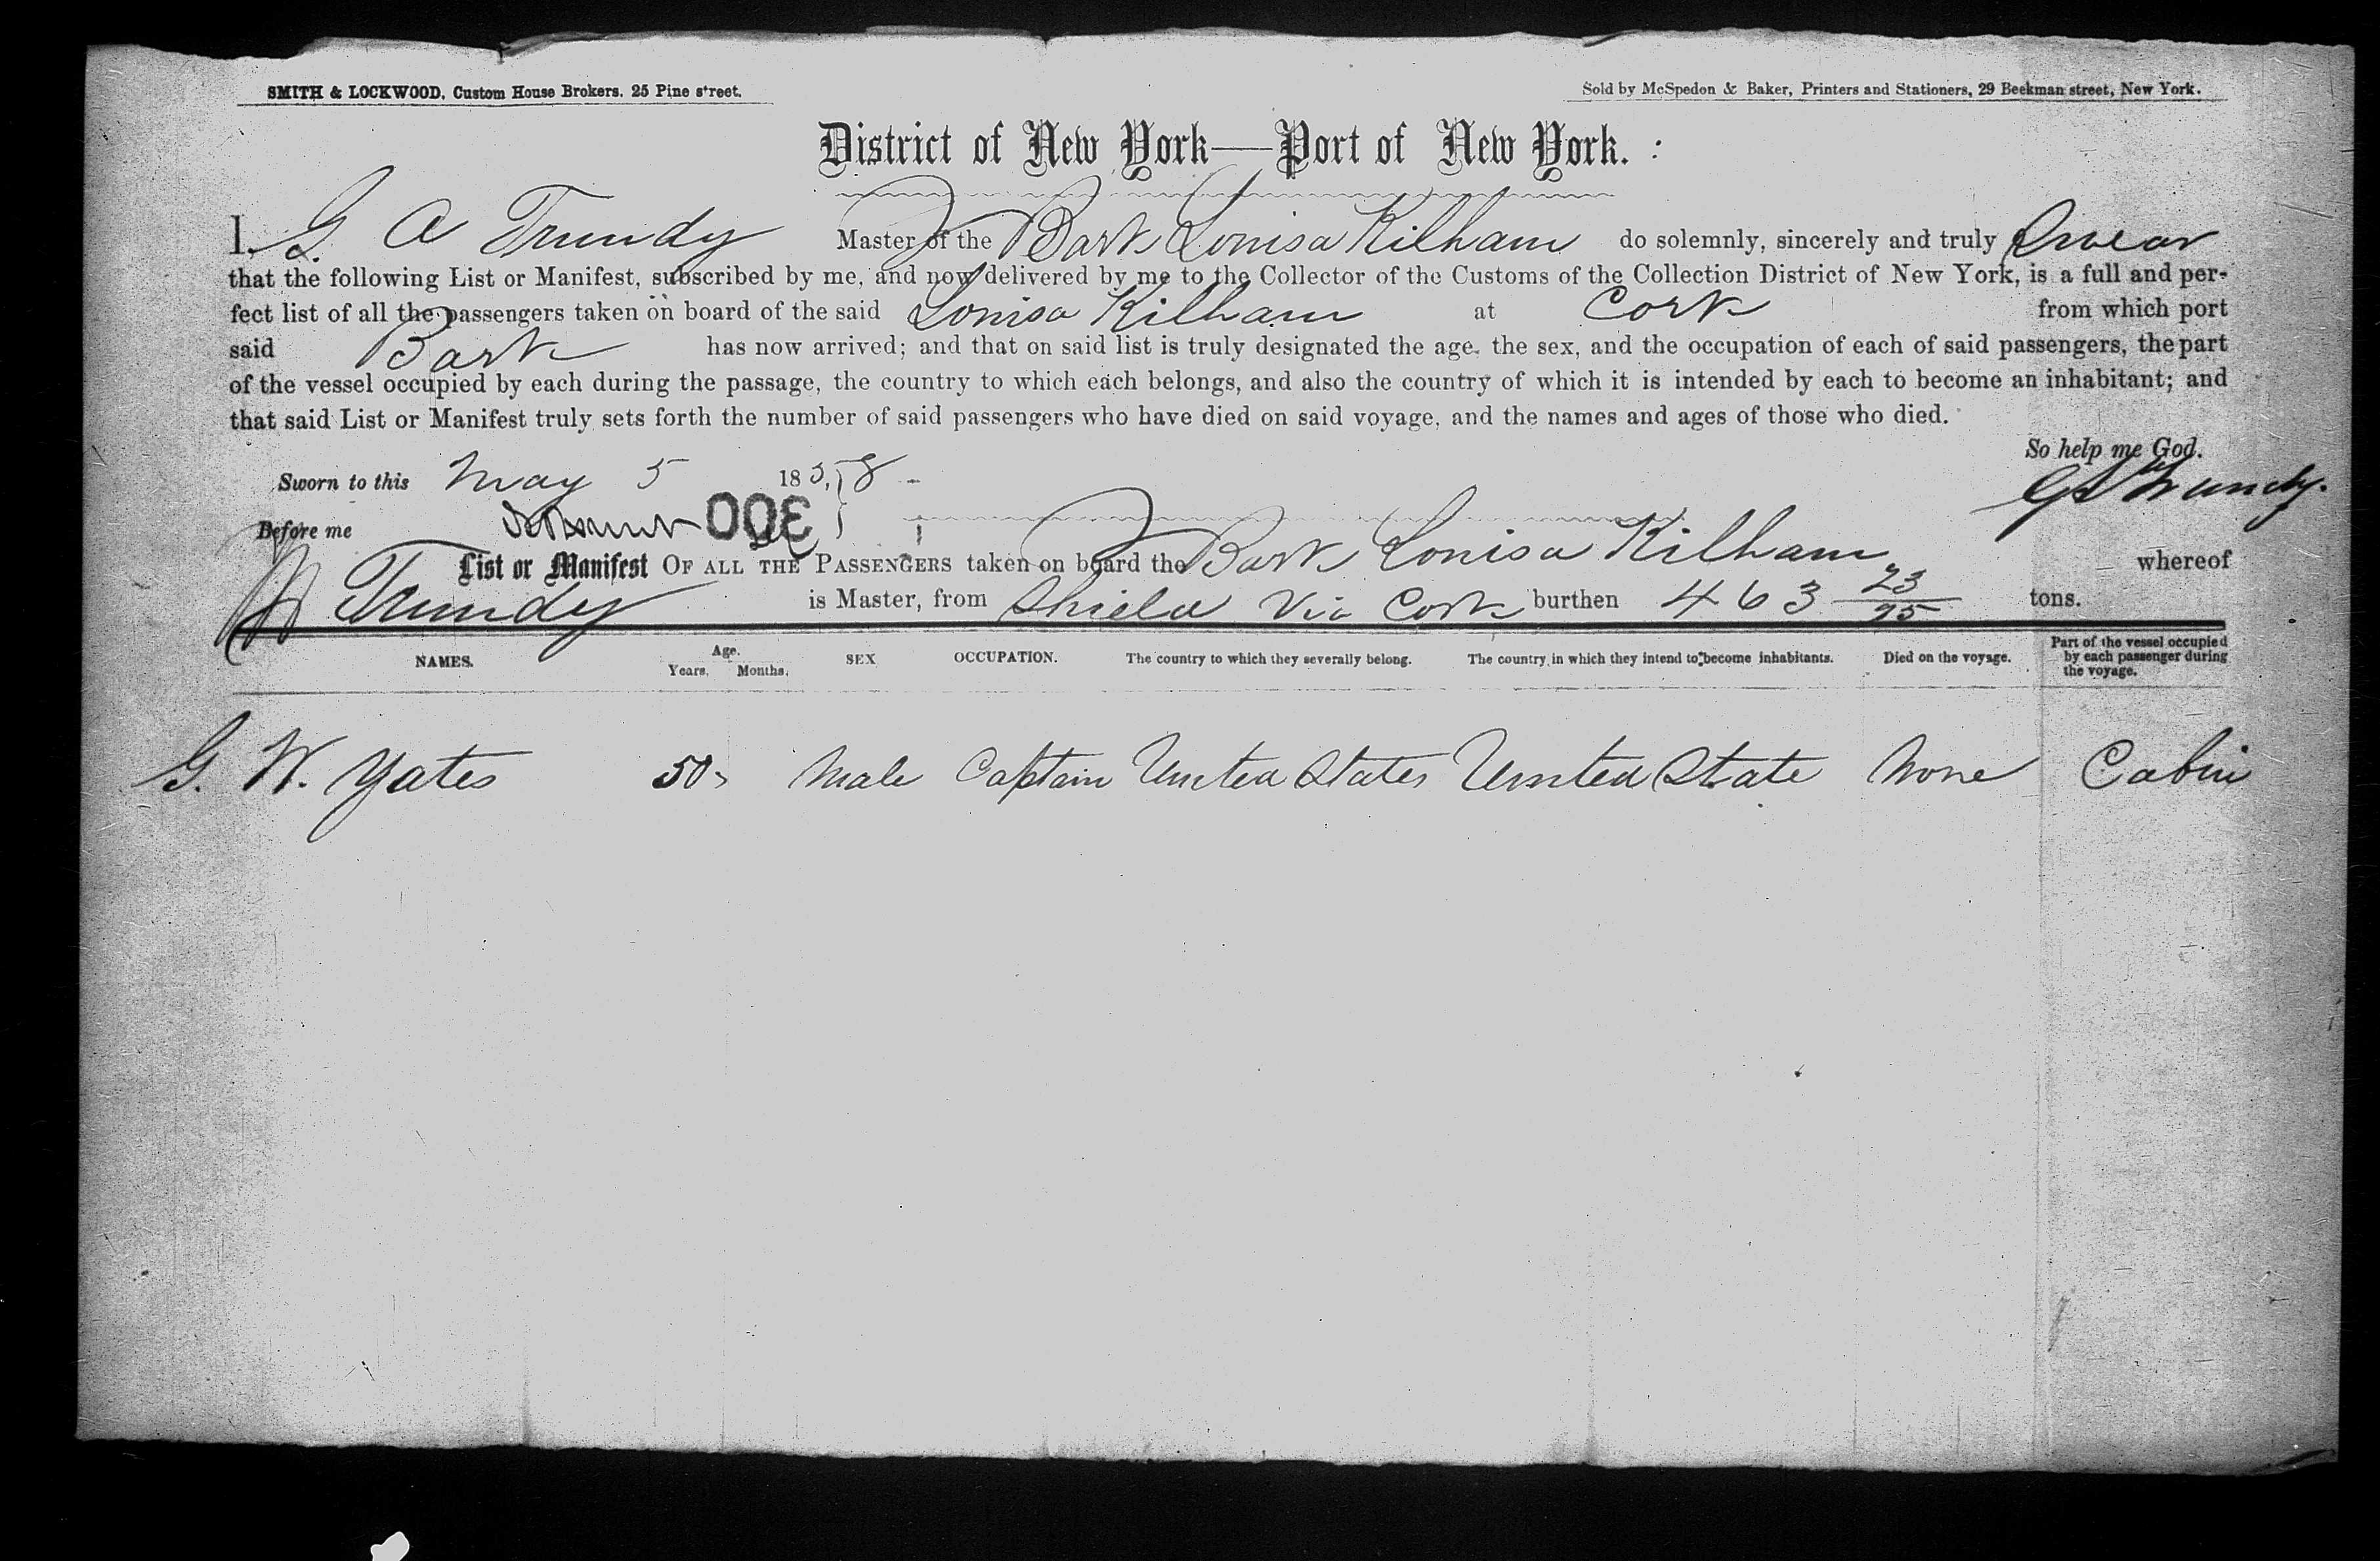 SMITH & LOCKWOOD, Custom House Brokers, 25 Pine street.
Sold by McSpedon & Baker, Printers and Stationers, 29 Beekman street, New York.
District of New York—Port of New York.
I, G. A Trundy Master of the Bark Louisa Kilham do solemnly, sincerely and truly Swear
that the following List or Manifest, subscribed by me, and now delivered by me to the Collector of the Customs of the Collection District of New York, is a full and per-
fect list of all the passengers taken on board of the said Louisa Kilham at Cork from which port
said Bark has now arrived; and that on said list is truly designated the age, the sex, and the occupation of each of said passengers, the part
of the vessel occupied by each during the passage, the country to which each belongs, and also the country of which it is intended by each to become an inhabitant; and
that said List or Manifest truly sets forth the number of said passengers who have died on said voyage, and the names and ages of those who died.
So help me God.
Sworn to this May 5 1858
Trundy.
Before me 300
List or Manifest OF ALL THE PASSENGERS taken on board the Bark Louisa Kilham whereof
Trundy is Master, from Shields Via Cork burthen 463 23/95 tons.
NAMES. Age. Years. Months. SEX OCCUPATION. The country to which they severally belong. The country in which they intend to become inhabitants. Died on the voyage. Part of the vessel occupied by each passenger during the voyage.
G. W. Yates 50 Male Captain United States United State None Cabin